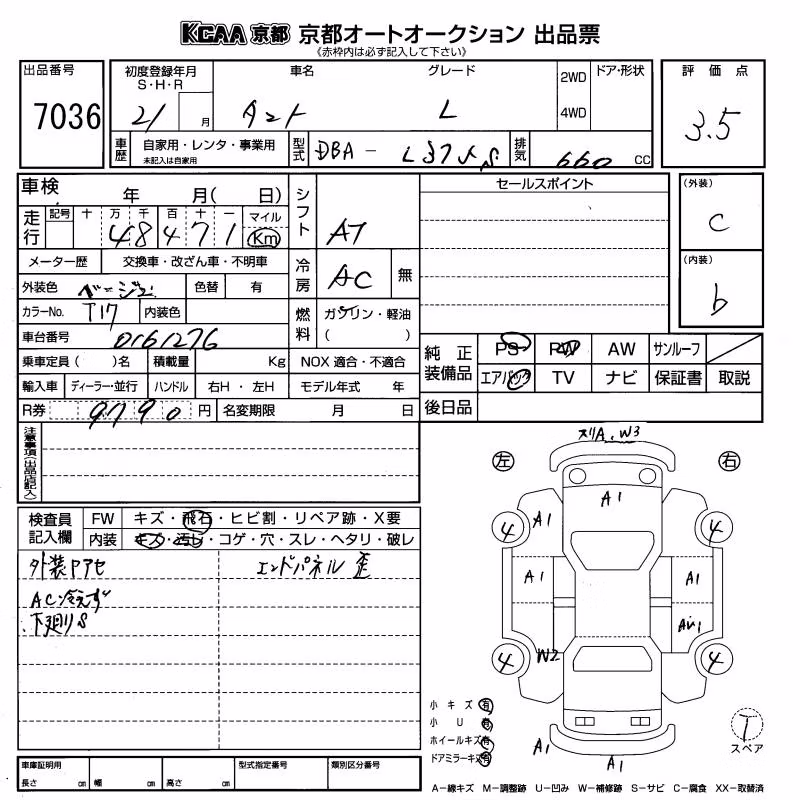 KCAA 京都 京都オートオークション 出品票
《赤枠内は必ず記入して下さい》
出品番号 初度登録年月 車名 グレード 2WD ドア・形状 評価点
S・H・R
7036 21 月 タント L 4WD 3.5
車歴 自家用・レンタ・事業用 型式 DBA- L375S 排気 660 CC
未記入は自家用
車検 年 月( 日) シフト AT セールスポイント (外装)
走行 記号 十 万 千 百 十 一 マイル C
48471 Km
メーター歴 交換車・改ざん車・不明車 冷房 AC 無 (内装)
外装色 ベージュ 色替 有 b
カラーNo. T17 内装色 燃料 ガソリン・軽油
車台番号 0161276 ( )
乗車定員( )名 積載量 Kg NOX 適合・不適合 純正装備品 PS PW AW サンルーフ
輸入車 ディーラー・並行 ハンドル 右H・左H モデル年式 年 エアバック TV ナビ 保証書 取説
R券 9790 円 名変期限 月 日 後日品
注意事項(出品店記入)
スリA、W3
左 右
A1
検査員記入欄 FW キズ・飛石・ヒビ割・リペア跡・X要
内装 キズ・汚レ・コゲ・穴・スレ・ヘタリ・破レ
4 A1 4
外装Pアセ エンドパネル 歪
A1 A1
AC冷えず
下廻りS
4 W2 4
小キズ 有
小U 有
ホイールキズ 有
ドアミラーキズ 有
T
スペア
A1
A1
車庫証明用 型式指定番号 類別区分番号
長さ cm 幅 cm 高さ cm
A-線キズ M-調整跡 U-凹み W-補修跡 S-サビ C-腐食 XX-取替済